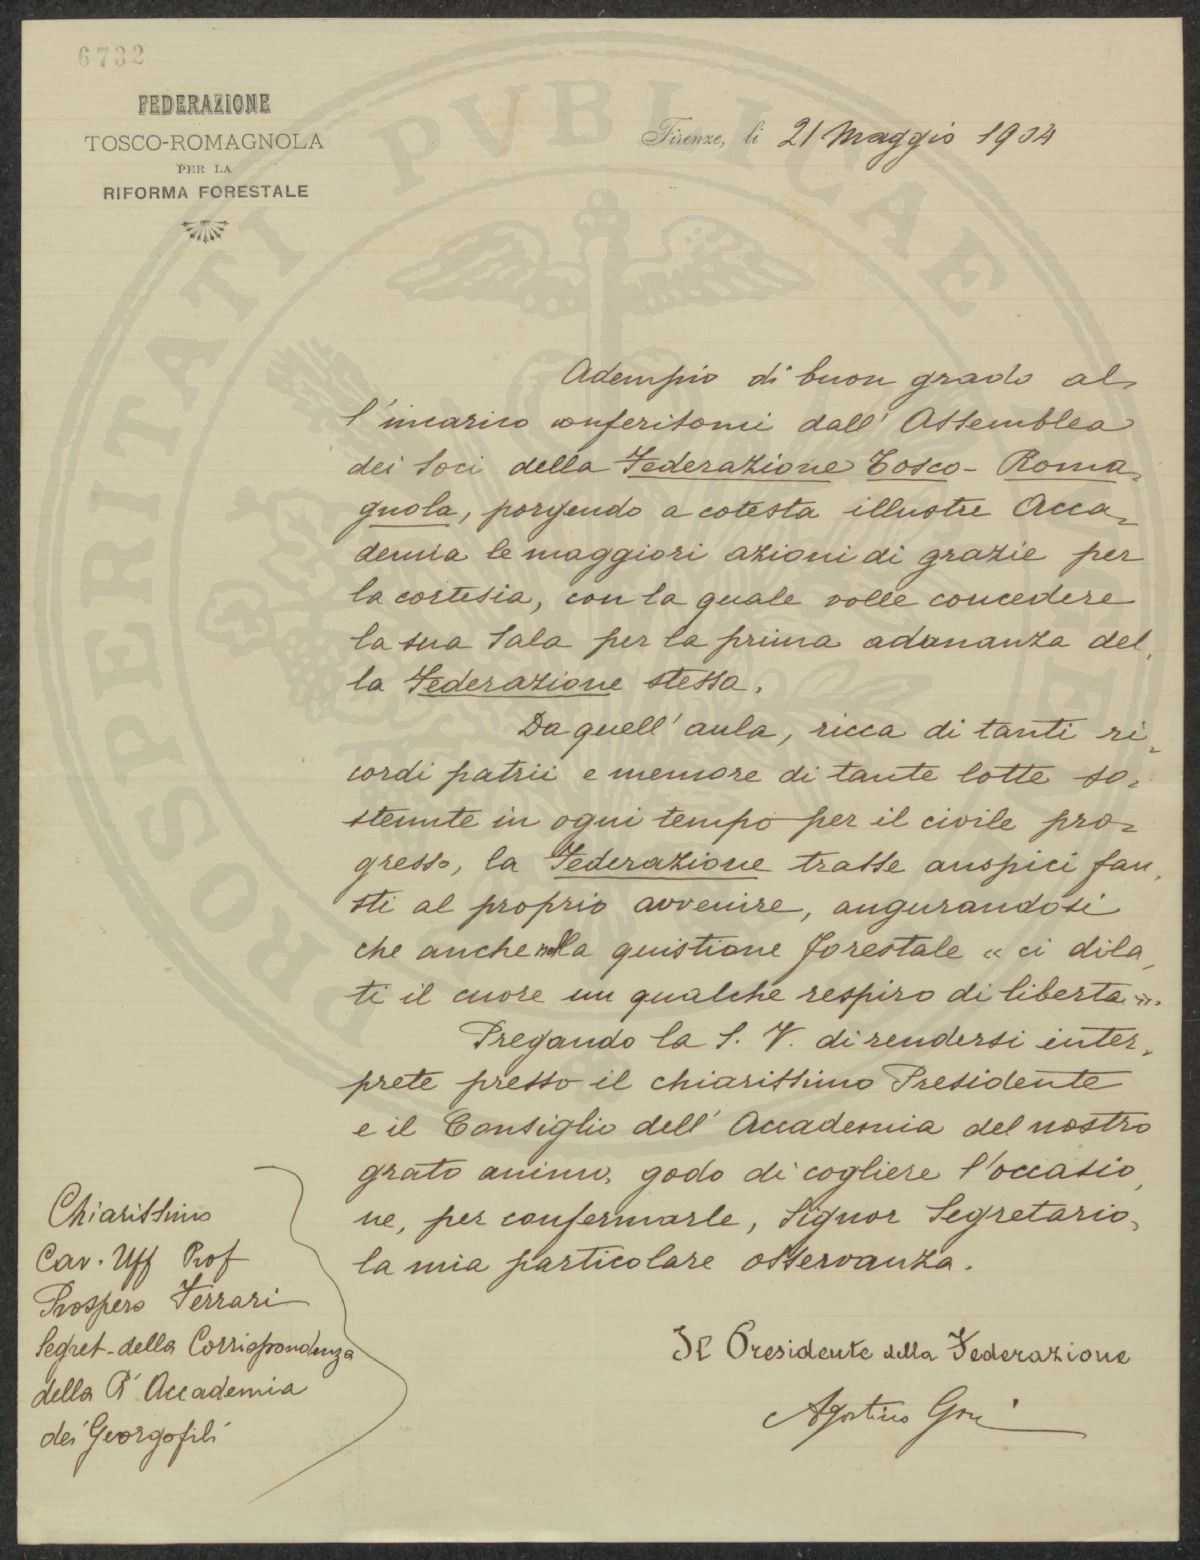 6732
FEDERAZIONE
TOSCO-ROMAGNOLA
PER LA
RIFORMA FORESTALE
Firenze, li 21 Maggio 1904
PROSPERITATI PVBLICAE
Adempio di buon grado al-
l'incarico conferitomi dall' Assemblea
dei Soci della Federazione Tosco-Roma-
gnola, porgendo a cotesta illustre Acca-
demia le maggiori azioni di grazie per
la cortesia, con la quale volle concedere
la sua Sala per la prima adunanza del-
la Federazione stessa.
Da quell' aula, ricca di tanti ri-
cordi patrii e memore di tante lotte so-
stenute in ogni tempo per il civile pro-
gresso, la Federazione trasse auspici fau-
sti al proprio avvenire, augurandosi
che anche nella quistione forestale « ci dila-
ti il cuore un qualche respiro di liberta ».
Pregando la S. V. di rendersi inter-
prete presso il chiarissimo Presidente
e il Consiglio dell' Accademia del nostro
grato animo, godo di cogliere l'occasio-
ne, per confermarle, Signor Segretario,
la mia particolare osservanza.
Il Presidente della Federazione
Agostino Gori
Chiarissimo
Cav. Uff Prof
Prospero Ferrari
Segret. della Corrispondenza
della R' Accademia
dei Georgofili